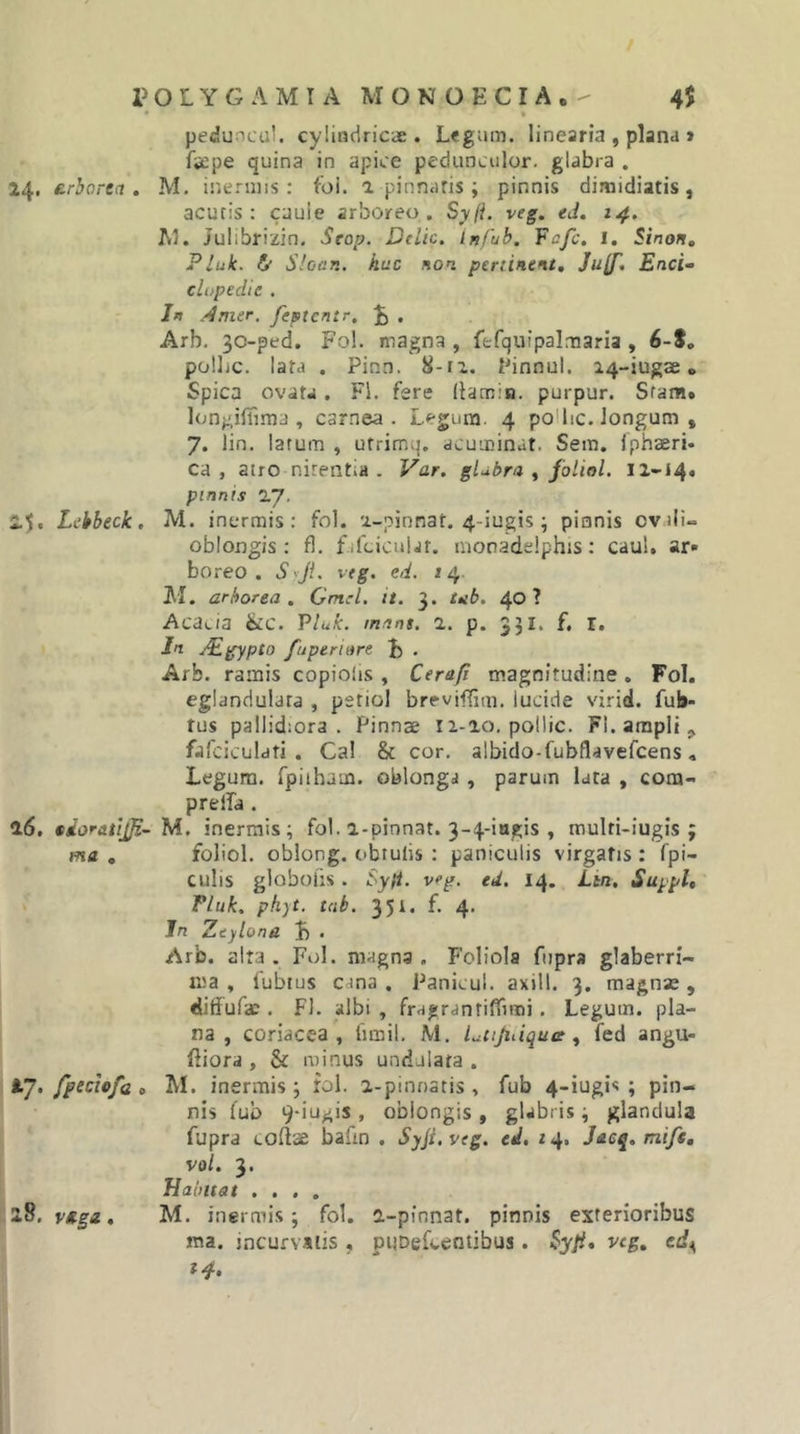 POLYGAMIA MONOECIA. 45
peduncul. cylindricæ. Legum. linearia, plana,
ſæpe quina in apice peduncular. glabra.
24. arborea. M. inermis: fol. 2 pinnatis; pinnis dimidiatis,
acutis: caule arboreo. Syſt. veg. ed. 14.
M. Julibrizin. Scop. Delic. Inſub. Faſc. 1. Sinon.
Pluk. & Sloan. huc non pertinent. Juſſ. Enci-
clopedie.
In Amer. ſeptentr. ♄.
Arb. 30-ped. Fol. magna, ſeſquipalmaria, 6-8.
pollic. lata. Pinn. 8-12. Pinnul. 24-iugæ.
Spica ovata. Fl. fere ſtamin. purpur. Stam.
longiſſima, carnea. Legum. 4 pollic. longum,
7. lin. latum, utrimq. acuminat. Sem. ſphæri-
ca, atro-nitentia. Var. glabra, foliol. 12-14.
pinnis 27.
25. Lebbeck. M. inermis: fol. 2-pinnat. 4-iugis; pinnis ovali-
oblongis: fl. faſciculat. monadelphis: caul. ar-
boreo. Syſt. veg. ed. 14.
M. arborea. Gmel. it. 3. tab. 40?
Acacia &c. Pluk. mant. 2. p. 331. f. 1.
In Ægypto ſuperiore ♄.
Arb. ramis copioſis, Ceraſi magnitudine. Fol.
eglandulata, petiol breviſſim. lucide virid. ſub-
tus pallidiora. Pinnæ 12-20. pollic. Fl. ampli,
faſciculati. Cal & cor. albido-ſubflaveſcens.
Legum. ſpitham. oblonga, parum lata, com-
preſſa.
26. odoratiſſi- M. inermis; fol. 2-pinnat. 3-4-iugis, multi-iugis;
ma. foliol. oblong. obtuſis: paniculis virgatis: ſpi-
culis globoſis. Syſt. veg. ed. 14. Lin. Suppl.
Pluk. phyt. tab. 351. f. 4.
In Zeylona ♄.
Arb. alta. Fol. magna. Foliola ſupra glaberri-
ma, ſubtus cana. Panicul. axill. 3. magnæ,
diffuſæ. Fl. albi, fragrantiſſimi. Legum. pla-
na, coriacea, ſimil. M. latiſiliquæ, ſed angu-
ſtiora, & minus undulata.
27. ſpecioſa. M. inermis; fol. 2-pinnatis, ſub 4-iugis; pin-
nis ſub 9-iugis, oblongis, glabris; glandula
ſupra coſtæ baſin. Syſt. veg. ed. 14. Jacq. miſc.
vol. 3.
Habitat ....
28. vaga. M. inermis; fol. 2-pinnat. pinnis exterioribus
ma. incurvatis, pubeſcentibus. Syſt. veg. ed.
14.